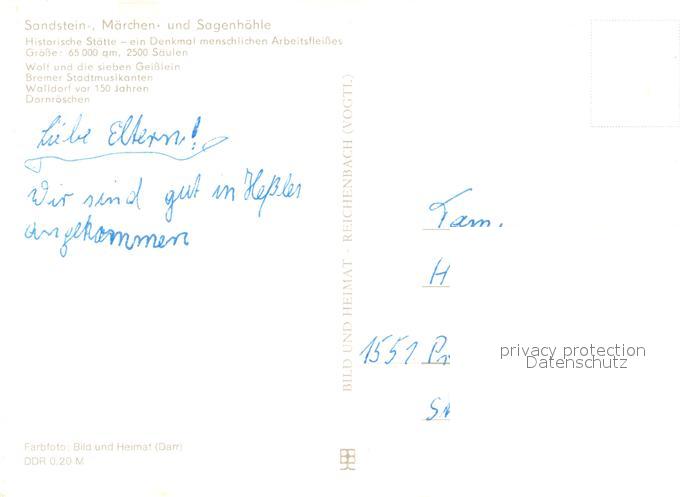 Sandstein-, Märchen- und Sagenhöhle
Historische Stätte – ein Denkmal menschlichen Arbeitsfleißes
Größe: 65 000 qm, 2500 Säulen
Wolf und die sieben Geißlein
Bremer Stadtmusikanten
Walldorf vor 150 Jahren
Dornröschen
Liebe Eltern!
Wir sind gut in Heßles
angekommen
Farbfoto: Bild und Heimat (Darr)
DDR 0.20 M
BILD UND HEIMAT · REICHENBACH (VOGTL)
Fam.
H
1551 Pr
St
privacy protection
Datenschutz